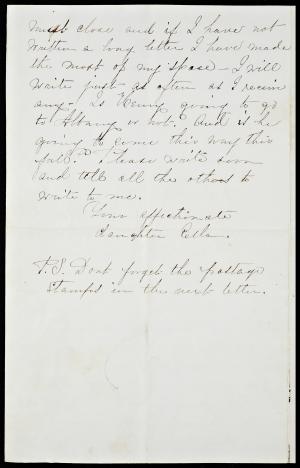 must close and if I have not
written a long letter I have made
the most of my space - I will
write just as often as I receive
any. Is Henry going to go
to Albany or not. And is he
going to come this way this
fall? Please write soon
and tell all the others to
write to me.
Your affectionate
daughter Ella.
P.S. Dont forget the postage
stamps in the next letter.